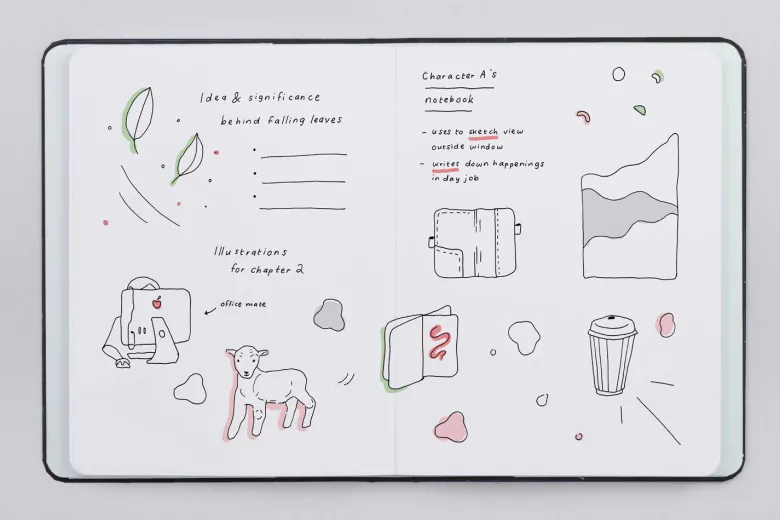 Idea & significance
behind falling leaves
Illustrations
for chapter 2
office mate
Character A's
notebook
- uses to sketch view
outside window
- writes down happenings
in day job